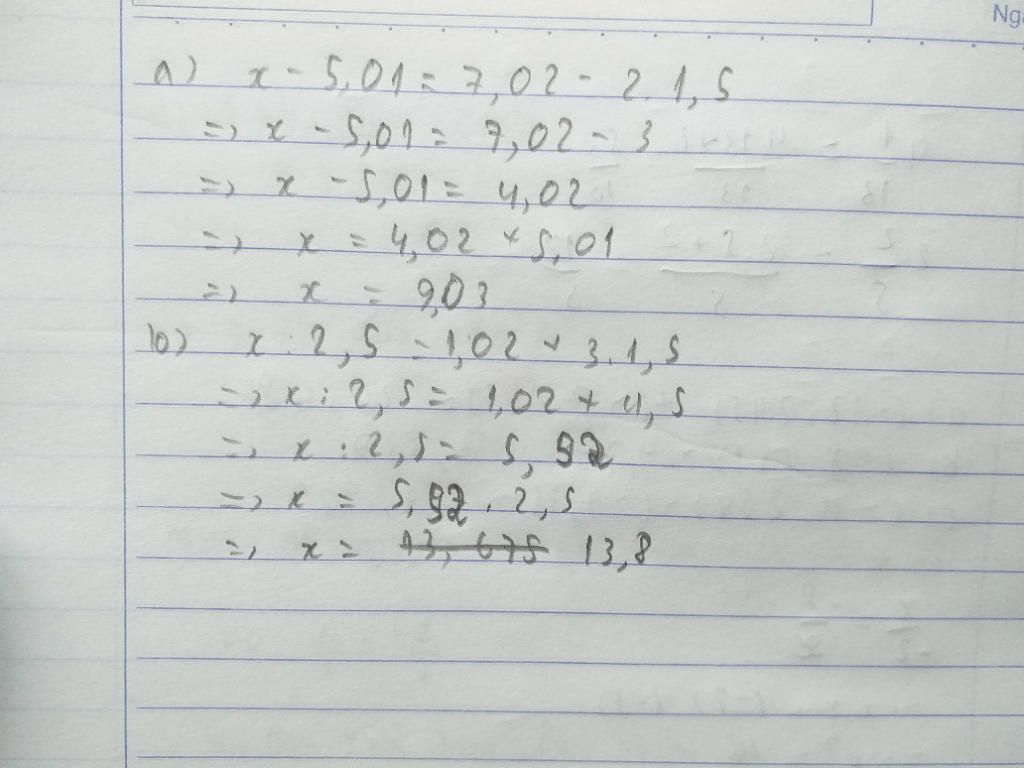 Ng
a) x - 5,01 = 7,02 - 2.1,5
=> x - 5,01 = 7,02 - 3
=> x - 5,01 = 4,02
=> x = 4,02 + 5,01
=> x = 9,03
b) x : 2,5 = 1,02 + 3.1,5
=> x : 2,5 = 1,02 + 4,5
=> x : 2,5 = 5,52
=> x = 5,52 . 2,5
=> x = 13,675 13,8